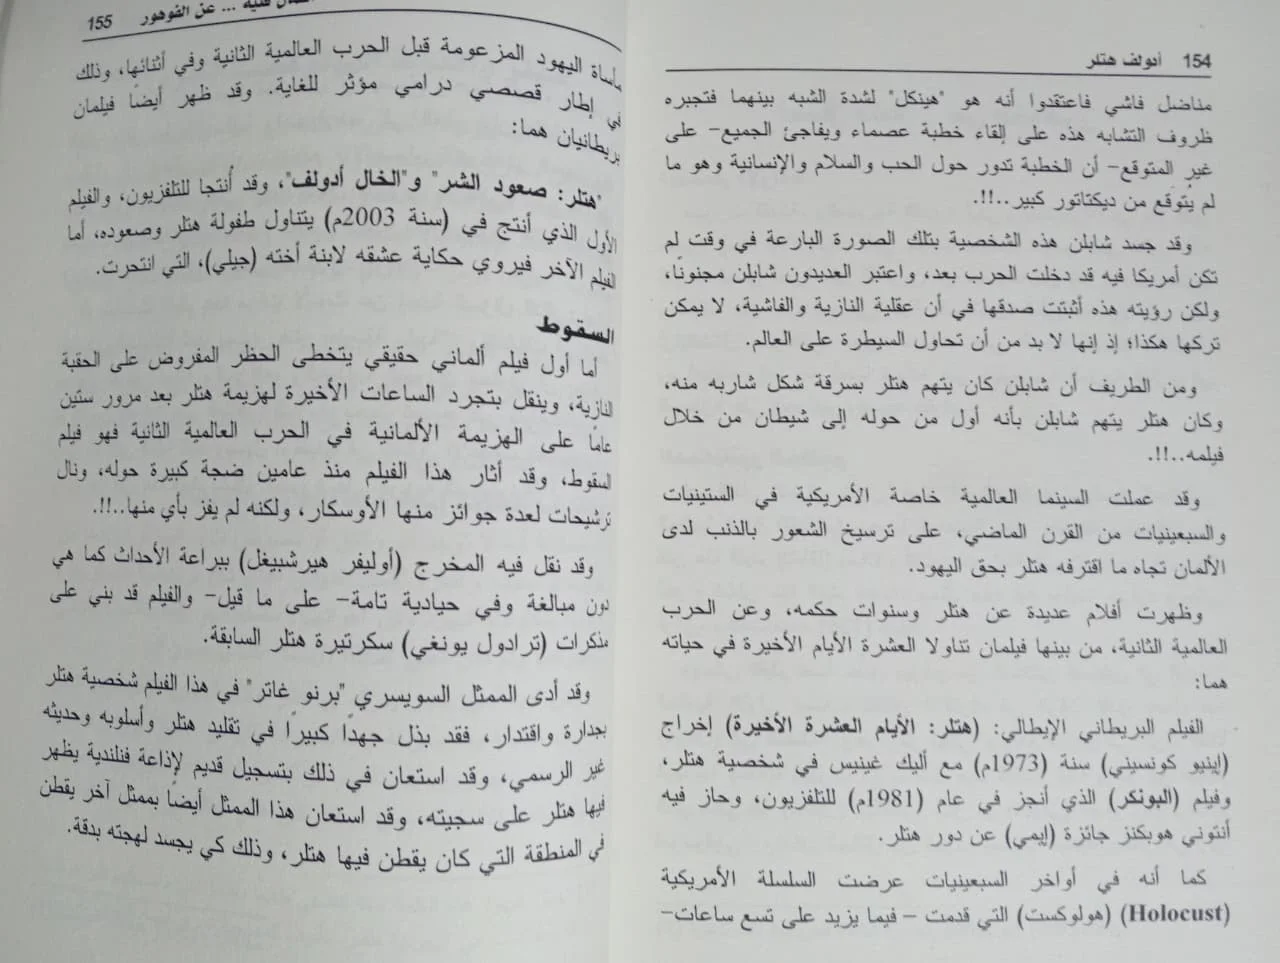 154 أدولف هتلر
مناضل فاشي فاعتقدوا أنه هو "هينكل" لشدة الشبه بينهما فتجبره
ظروف التشابه هذه على إلقاء خطبة عصماء ويفاجئ الجميع- على
غير المتوقع- أن الخطبة تدور حول الحب والسلام والإنسانية وهو ما
لم يُتوقع من ديكتاتور كبير..!!.
وقد جسد شابلن هذه الشخصية بتلك الصورة البارعة في وقت لم
تكن أمريكا فيه قد دخلت الحرب بعد، واعتبر العديدون شابلن مجنونًا،
ولكن رؤيته هذه أثبتت صدقها في أن عقلية النازية والفاشية، لا يمكن
تركها هكذا؛ إذ إنها لا بد من أن تحاول السيطرة على العالم.
ومن الطريف أن شابلن كان يتهم هتلر بسرقة شكل شاربه منه،
وكان هتلر يتهم شابلن بأنه أول من حوله إلى شيطان من خلال
فيلمه..!!.
وقد عملت السينما العالمية خاصة الأمريكية في الستينيات
والسبعينيات من القرن الماضي، على ترسيخ الشعور بالذنب لدى
الألمان تجاه ما اقترفه هتلر بحق اليهود.
وظهرت أفلام عديدة عن هتلر وسنوات حكمه، وعن الحرب
العالمية الثانية، من بينها فيلمان تناولا العشرة الأيام الأخيرة في حياته
هما:
الفيلم البريطاني الإيطالي: (هتلر: الأيام العشرة الأخيرة) إخراج
(إينيو كونسيني) سنة (1973م) مع أليك غينيس في شخصية هتلر،
وفيلم (البونكر) الذي أنجز في عام (1981م) للتلفزيون، وحاز فيه
أنتوني هوبكنز جائزة (إيمي) عن دور هتلر.
كما أنه في أواخر السبعينيات عرضت السلسلة الأمريكية
(Holocust) (هولوكست) التي قدمت - فيما يزيد على تسع ساعات-
فنية ... عن الفوهور 155
مأساة اليهود المزعومة قبل الحرب العالمية الثانية وفي أثنائها، وذلك
في إطار قصصي درامي مؤثر للغاية. وقد ظهر أيضًا فيلمان
بريطانيان هما:
"هتلر: صعود الشر" و"الخال أدولف"، وقد أُنتجا للتلفزيون، والفيلم
الأول الذي أنتج في (سنة 2003م) يتناول طفولة هتلر وصعوده، أما
الفيلم الآخر فيروي حكاية عشقه لابنة أخته (جيلي)، التي انتحرت.
السقوط
أما أول فيلم ألماني حقيقي يتخطى الحظر المفروض على الحقبة
النازية، وينقل بتجرد الساعات الأخيرة لهزيمة هتلر بعد مرور ستين
عامًا على الهزيمة الألمانية في الحرب العالمية الثانية فهو فيلم
السقوط، وقد أثار هذا الفيلم منذ عامين ضجة كبيرة حوله، ونال
ترشيحات لعدة جوائز منها الأوسكار، ولكنه لم يفز بأي منها..!!.
وقد نقل فيه المخرج (أوليفر هيرشبيغل) ببراعة الأحداث كما هي
دون مبالغة وفي حيادية تامة- على ما قيل- والفيلم قد بني على
مذكرات (ترادول يونغي) سكرتيرة هتلر السابقة.
وقد أدى الممثل السويسري "برنو غاتر" في هذا الفيلم شخصية هتلر
بجدارة واقتدار، فقد بذل جهدًا كبيرًا في تقليد هتلر وأسلوبه وحديثه
غير الرسمي، وقد استعان في ذلك بتسجيل قديم لإذاعة فنلندية يظهر
فيها هتلر على سجيته، وقد استعان هذا الممثل أيضًا بممثل آخر يقطن
في المنطقة التي كان يقطن فيها هتلر، وذلك كي يجسد لهجته بدقة.